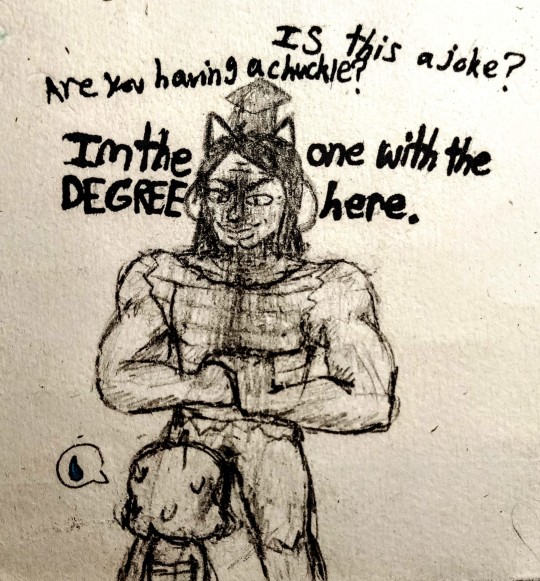 Is this a joke?
Are you having a chuckle?
Im the one with the
DEGREE here.